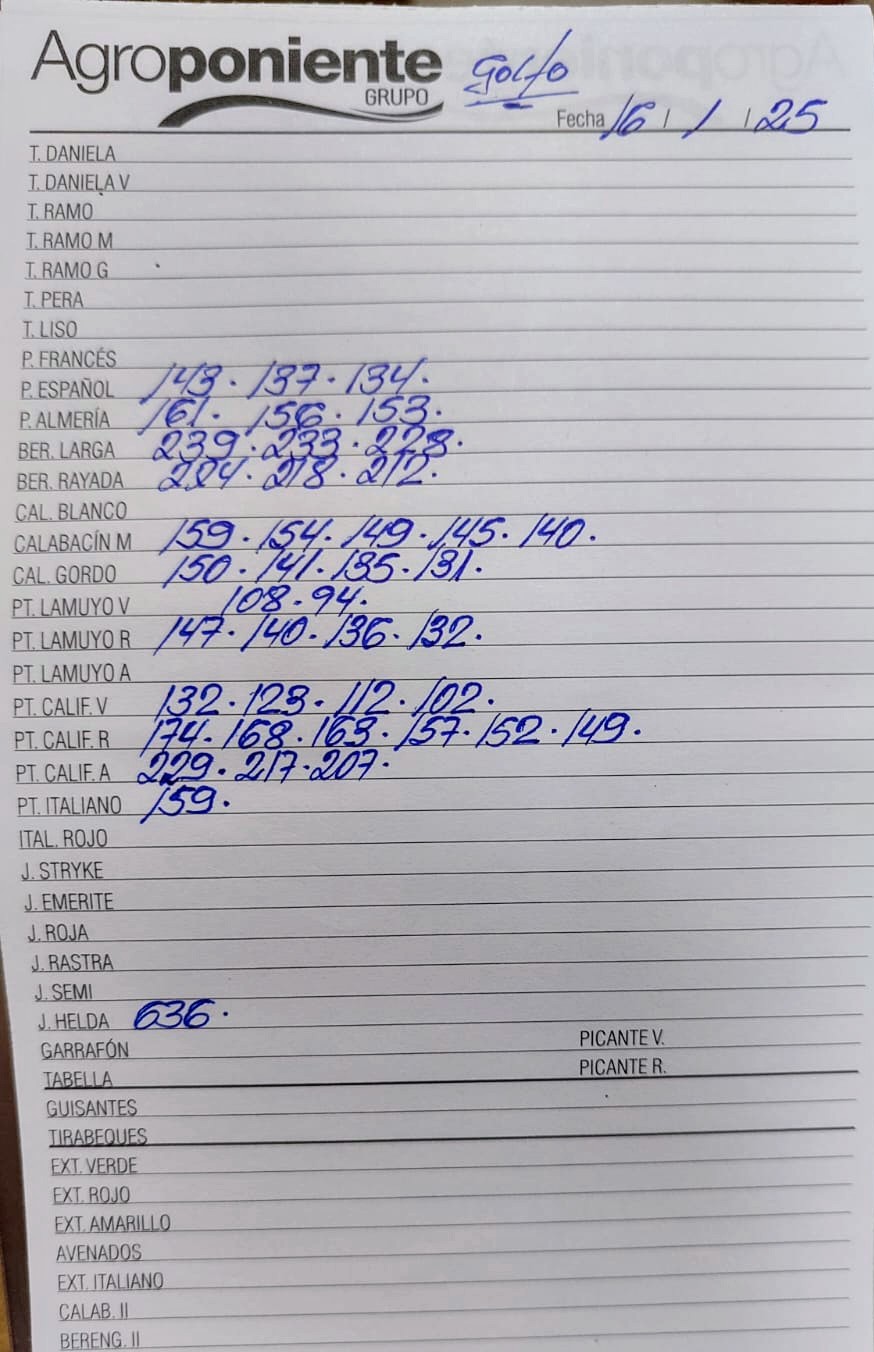 Agroponiente
GRUPO
Golfo
Fecha 16 / 1 / 25
T. DANIELA
T. DANIELA V
T. RAMO
T. RAMO M
T. RAMO G
T. PERA
T. LISO
P. FRANCÉS
P. ESPAÑOL 143. 137. 134.
P. ALMERÍA 161. 156. 153.
BER. LARGA 239. 233. 228.
BER. RAYADA 224. 218. 212.
CAL. BLANCO
CALABACÍN M 159. 154. 149. 145. 140.
CAL. GORDO 150. 141. 135. 131.
PT. LAMUYO V 108. 94.
PT. LAMUYO R 147. 140. 136. 132.
PT. LAMUYO A
PT. CALIF. V 132. 123. 112. 102.
PT. CALIF. R 174. 168. 163. 157. 152. 149.
PT. CALIF. A 229. 217. 207.
PT. ITALIANO 159.
ITAL. ROJO
J. STRYKE
J. EMERITE
J. ROJA
J. RASTRA
J. SEMI
J. HELDA 636.
GARRAFÓN PICANTE V.
TABELLA PICANTE R.
GUISANTES
TIRABEQUES
EXT. VERDE
EXT. ROJO
EXT. AMARILLO
AVENADOS
EXT. ITALIANO
CALAB. II
BERENG. II